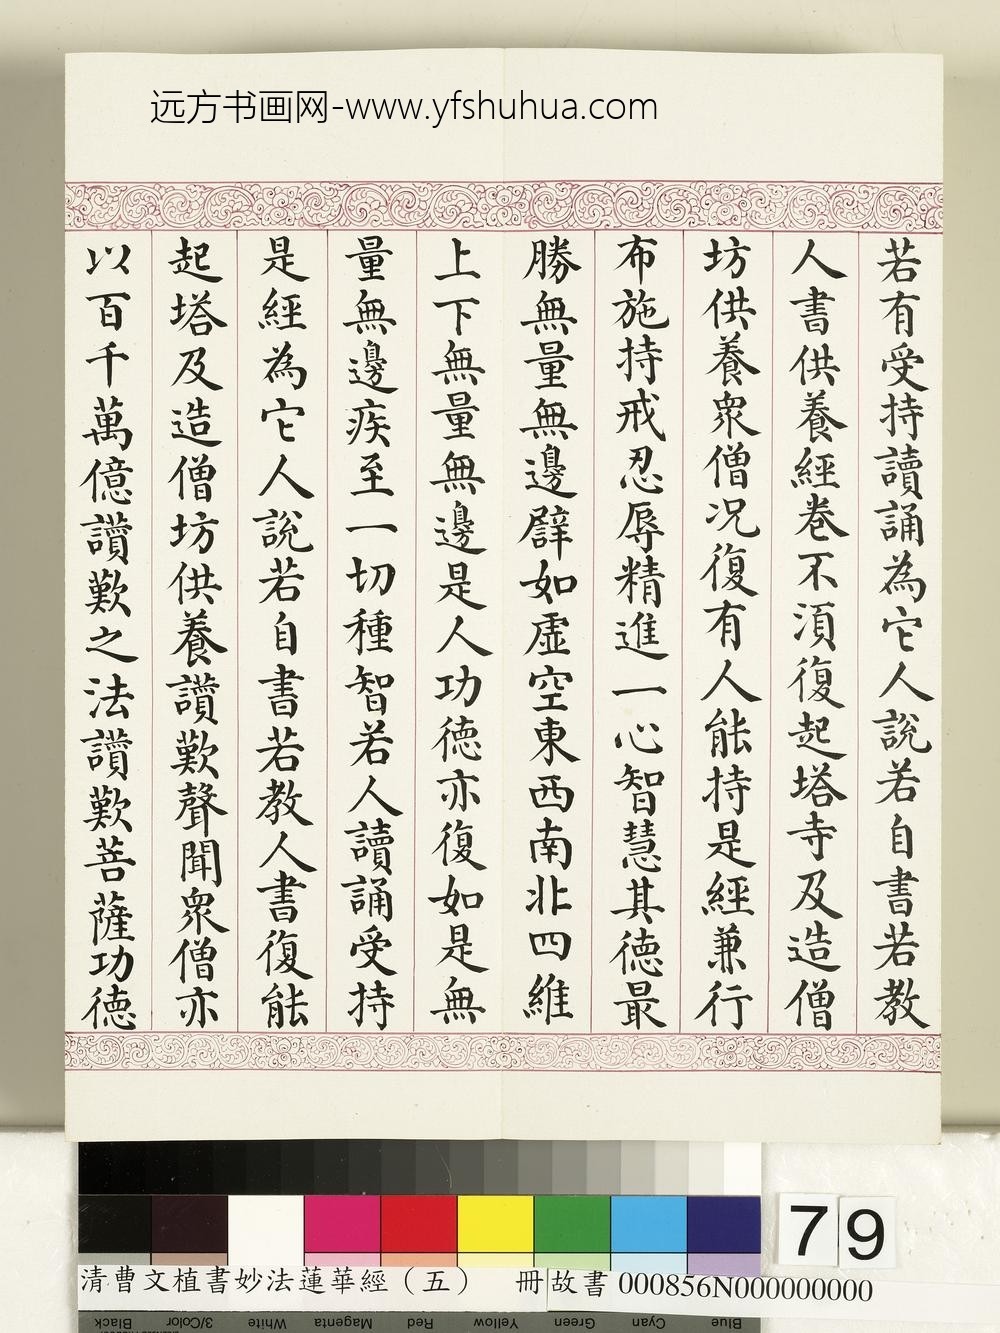 远方书画网-www.yfshuhua.com
若有受持讀誦為它人說若自書若教
人書供養經卷不須復起塔寺及造僧
坊供養眾僧况復有人能持是經兼行
布施持戒忍辱精進一心智慧其德最
勝無量無邊譬如虛空東西南北四維
上下無量無邊是人功德亦復如是無
量無邊疾至一切種智若人讀誦受持
是經為它人說若自書若教人書復能
起塔及造僧坊供養讚歎聲聞眾僧亦
以百千萬億讚歎之法讚歎菩薩功德
79
清曹文植書妙法蓮華經（五） 冊故書000856N000000000
Black 3/Color White Magenta Red Yellow Green Cyan Blue